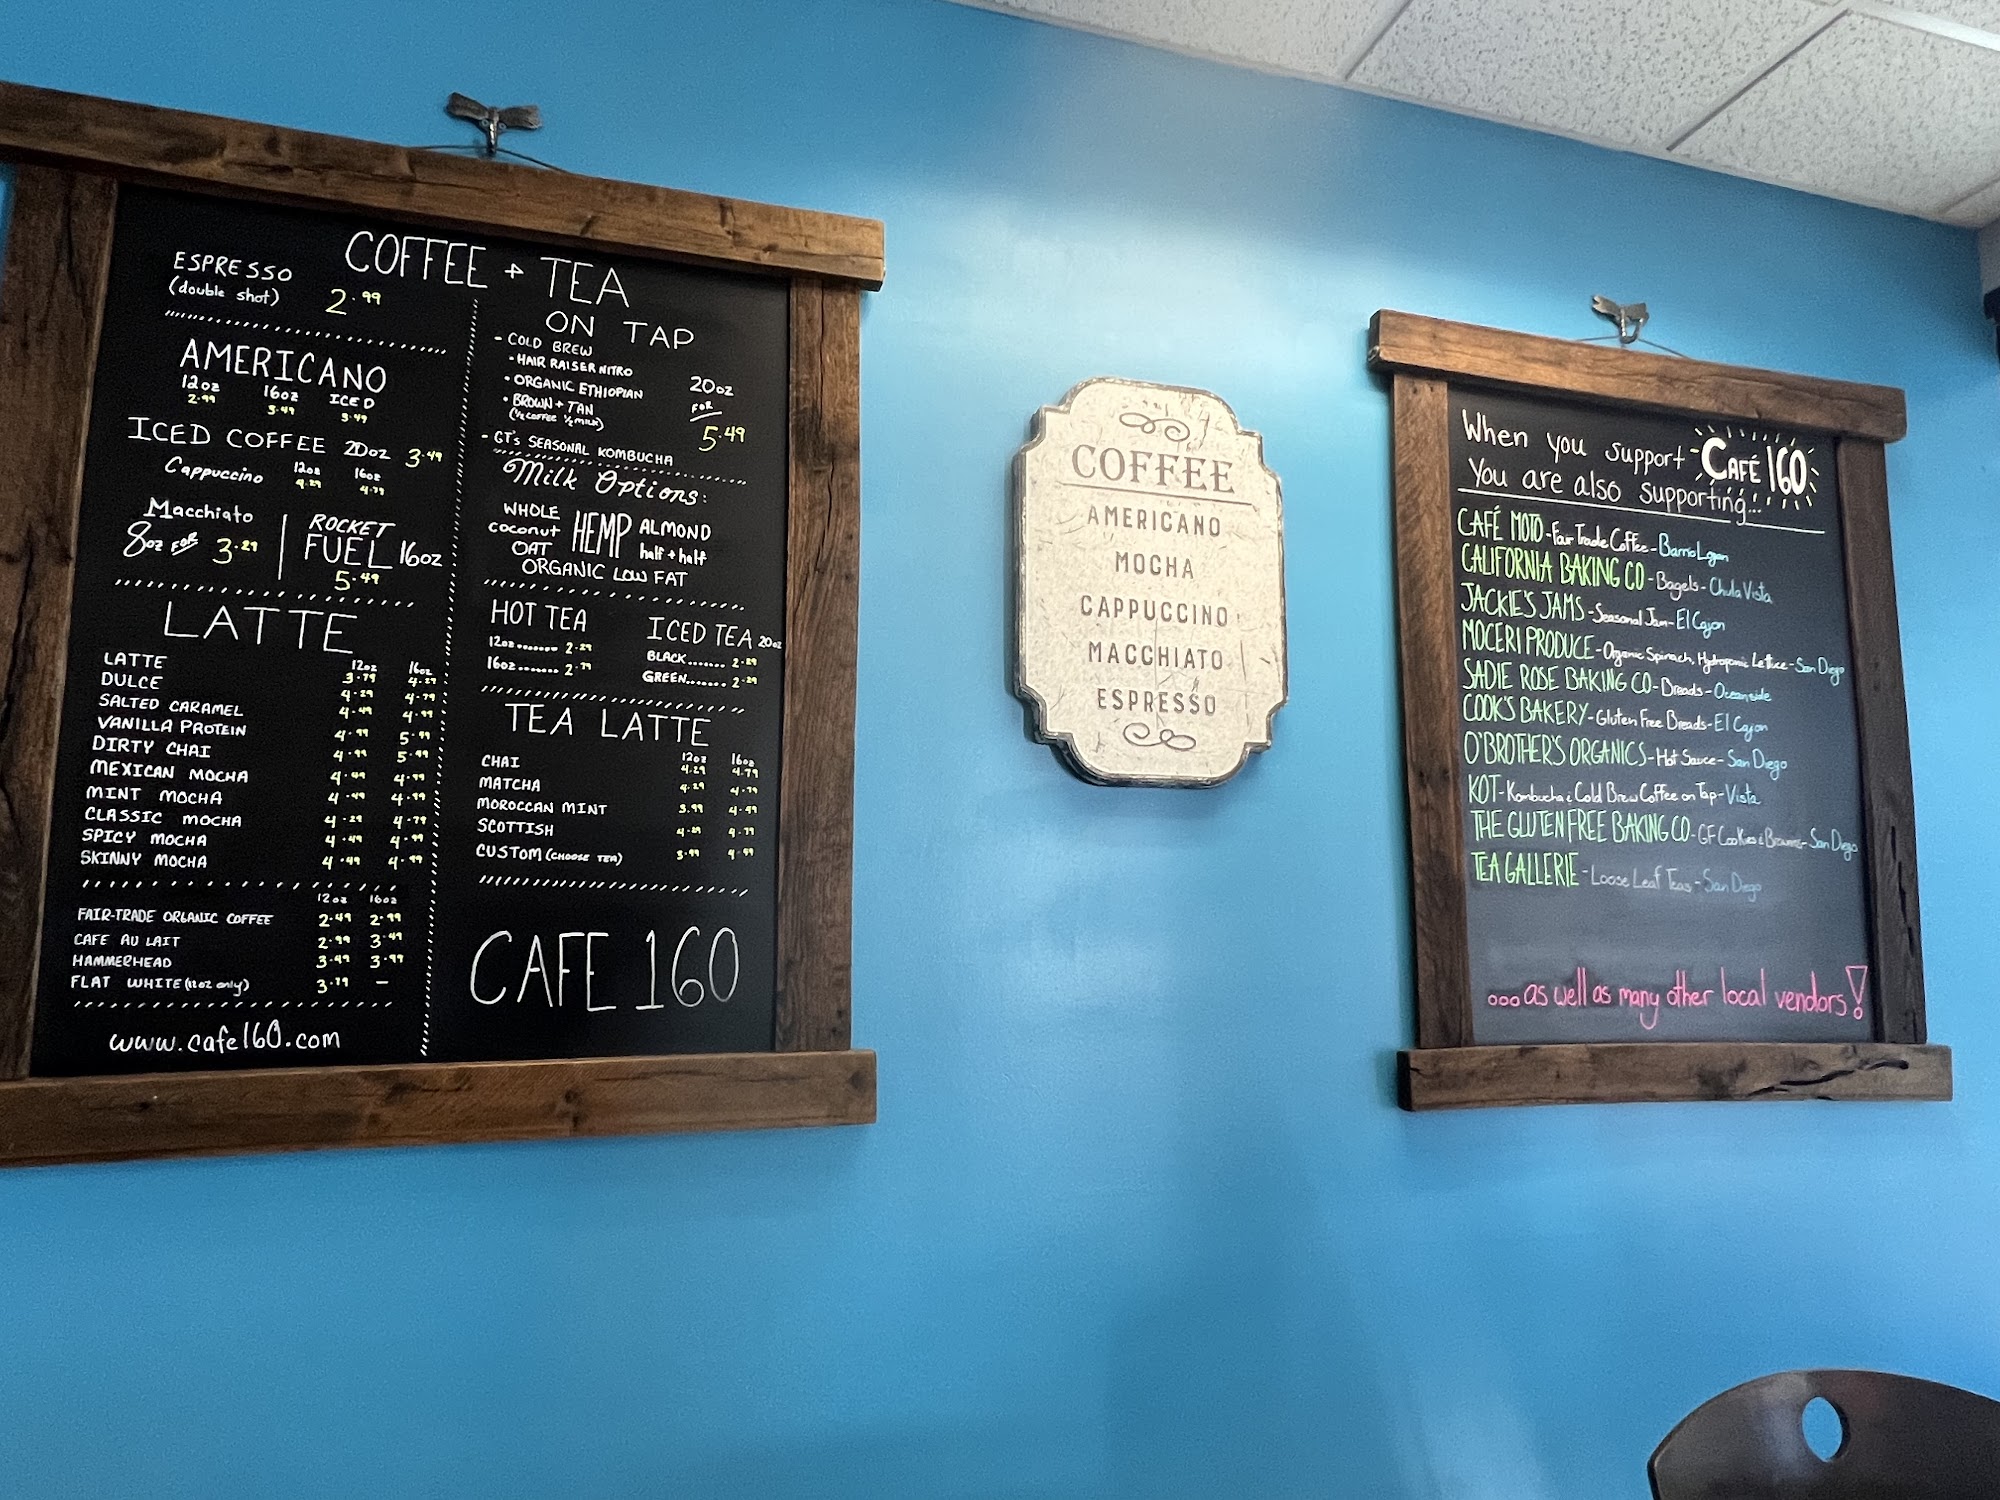 COFFEE + TEA
ESPRESSO
(double shot) 2.99
AMERICANO
12oz 16oz ICED
2.99 3.49 3.49
ICED COFFEE 20oz 3.49
Cappuccino 12oz 16oz
4.29 4.79
Macchiato
8oz FOR 3.29
ROCKET
FUEL 16oz
5.49
LATTE
12oz 16oz
LATTE 3.79 4.29
DULCE 4.29 4.79
SALTED CARAMEL 4.49 4.99
VANILLA PROTEIN 4.99 5.99
DIRTY CHAI 4.99 5.99
MEXICAN MOCHA 4.49 4.99
MINT MOCHA 4.49 4.99
CLASSIC MOCHA 4.29 4.79
SPICY MOCHA 4.49 4.99
SKINNY MOCHA 4.49 4.99
12oz 16oz
FAIR-TRADE ORGANIC COFFEE 2.49 2.99
CAFE AU LAIT 2.99 3.49
HAMMERHEAD 3.49 3.99
FLAT WHITE (12oz only) 3.79 —
www.cafe160.com
ON TAP
- COLD BREW
• HAIR RAISER NITRO
• ORGANIC ETHIOPIAN
• BROWN + TAN
(½ COFFEE ½ MILK)
- GT's SEASONAL KOMBUCHA
20oz
FOR
5.49
Milk Options:
WHOLE HEMP ALMOND
coconut half + half
OAT
ORGANIC LOW FAT
HOT TEA
12oz........ 2.29
16oz........ 2.79
ICED TEA 20oz
BLACK....... 2.29
GREEN....... 2.29
TEA LATTE
12oz 16oz
CHAI 4.29 4.79
MATCHA 4.29 4.79
MOROCCAN MINT 3.99 4.49
SCOTTISH 4.29 4.79
CUSTOM (CHOOSE TEA) 3.99 4.49
CAFE 160
COFFEE
AMERICANO
MOCHA
CAPPUCCINO
MACCHIATO
ESPRESSO
When you support CAFÉ 160
You are also supporting...
CAFÉ MOTO - Fair Trade Coffee - Barrio Logan
CALIFORNIA BAKING CO - Bagels - Chula Vista
JACKIE'S JAMS - Seasonal Jam - El Cajon
MOCERI PRODUCE - Organic Spinach, Hydroponic Lettuce - San Diego
SADIE ROSE BAKING CO - Breads - Oceanside
COOK'S BAKERY - Gluten Free Breads - El Cajon
O'BROTHER'S ORGANICS - Hot Sauce - San Diego
KOT - Kombucha & Cold Brew Coffee on Tap - Vista
THE GLUTEN FREE BAKING CO - GF Cookies & Brownies - San Diego
TEA GALLERIE - Loose Leaf Teas - San Diego
...as well as many other local vendors!